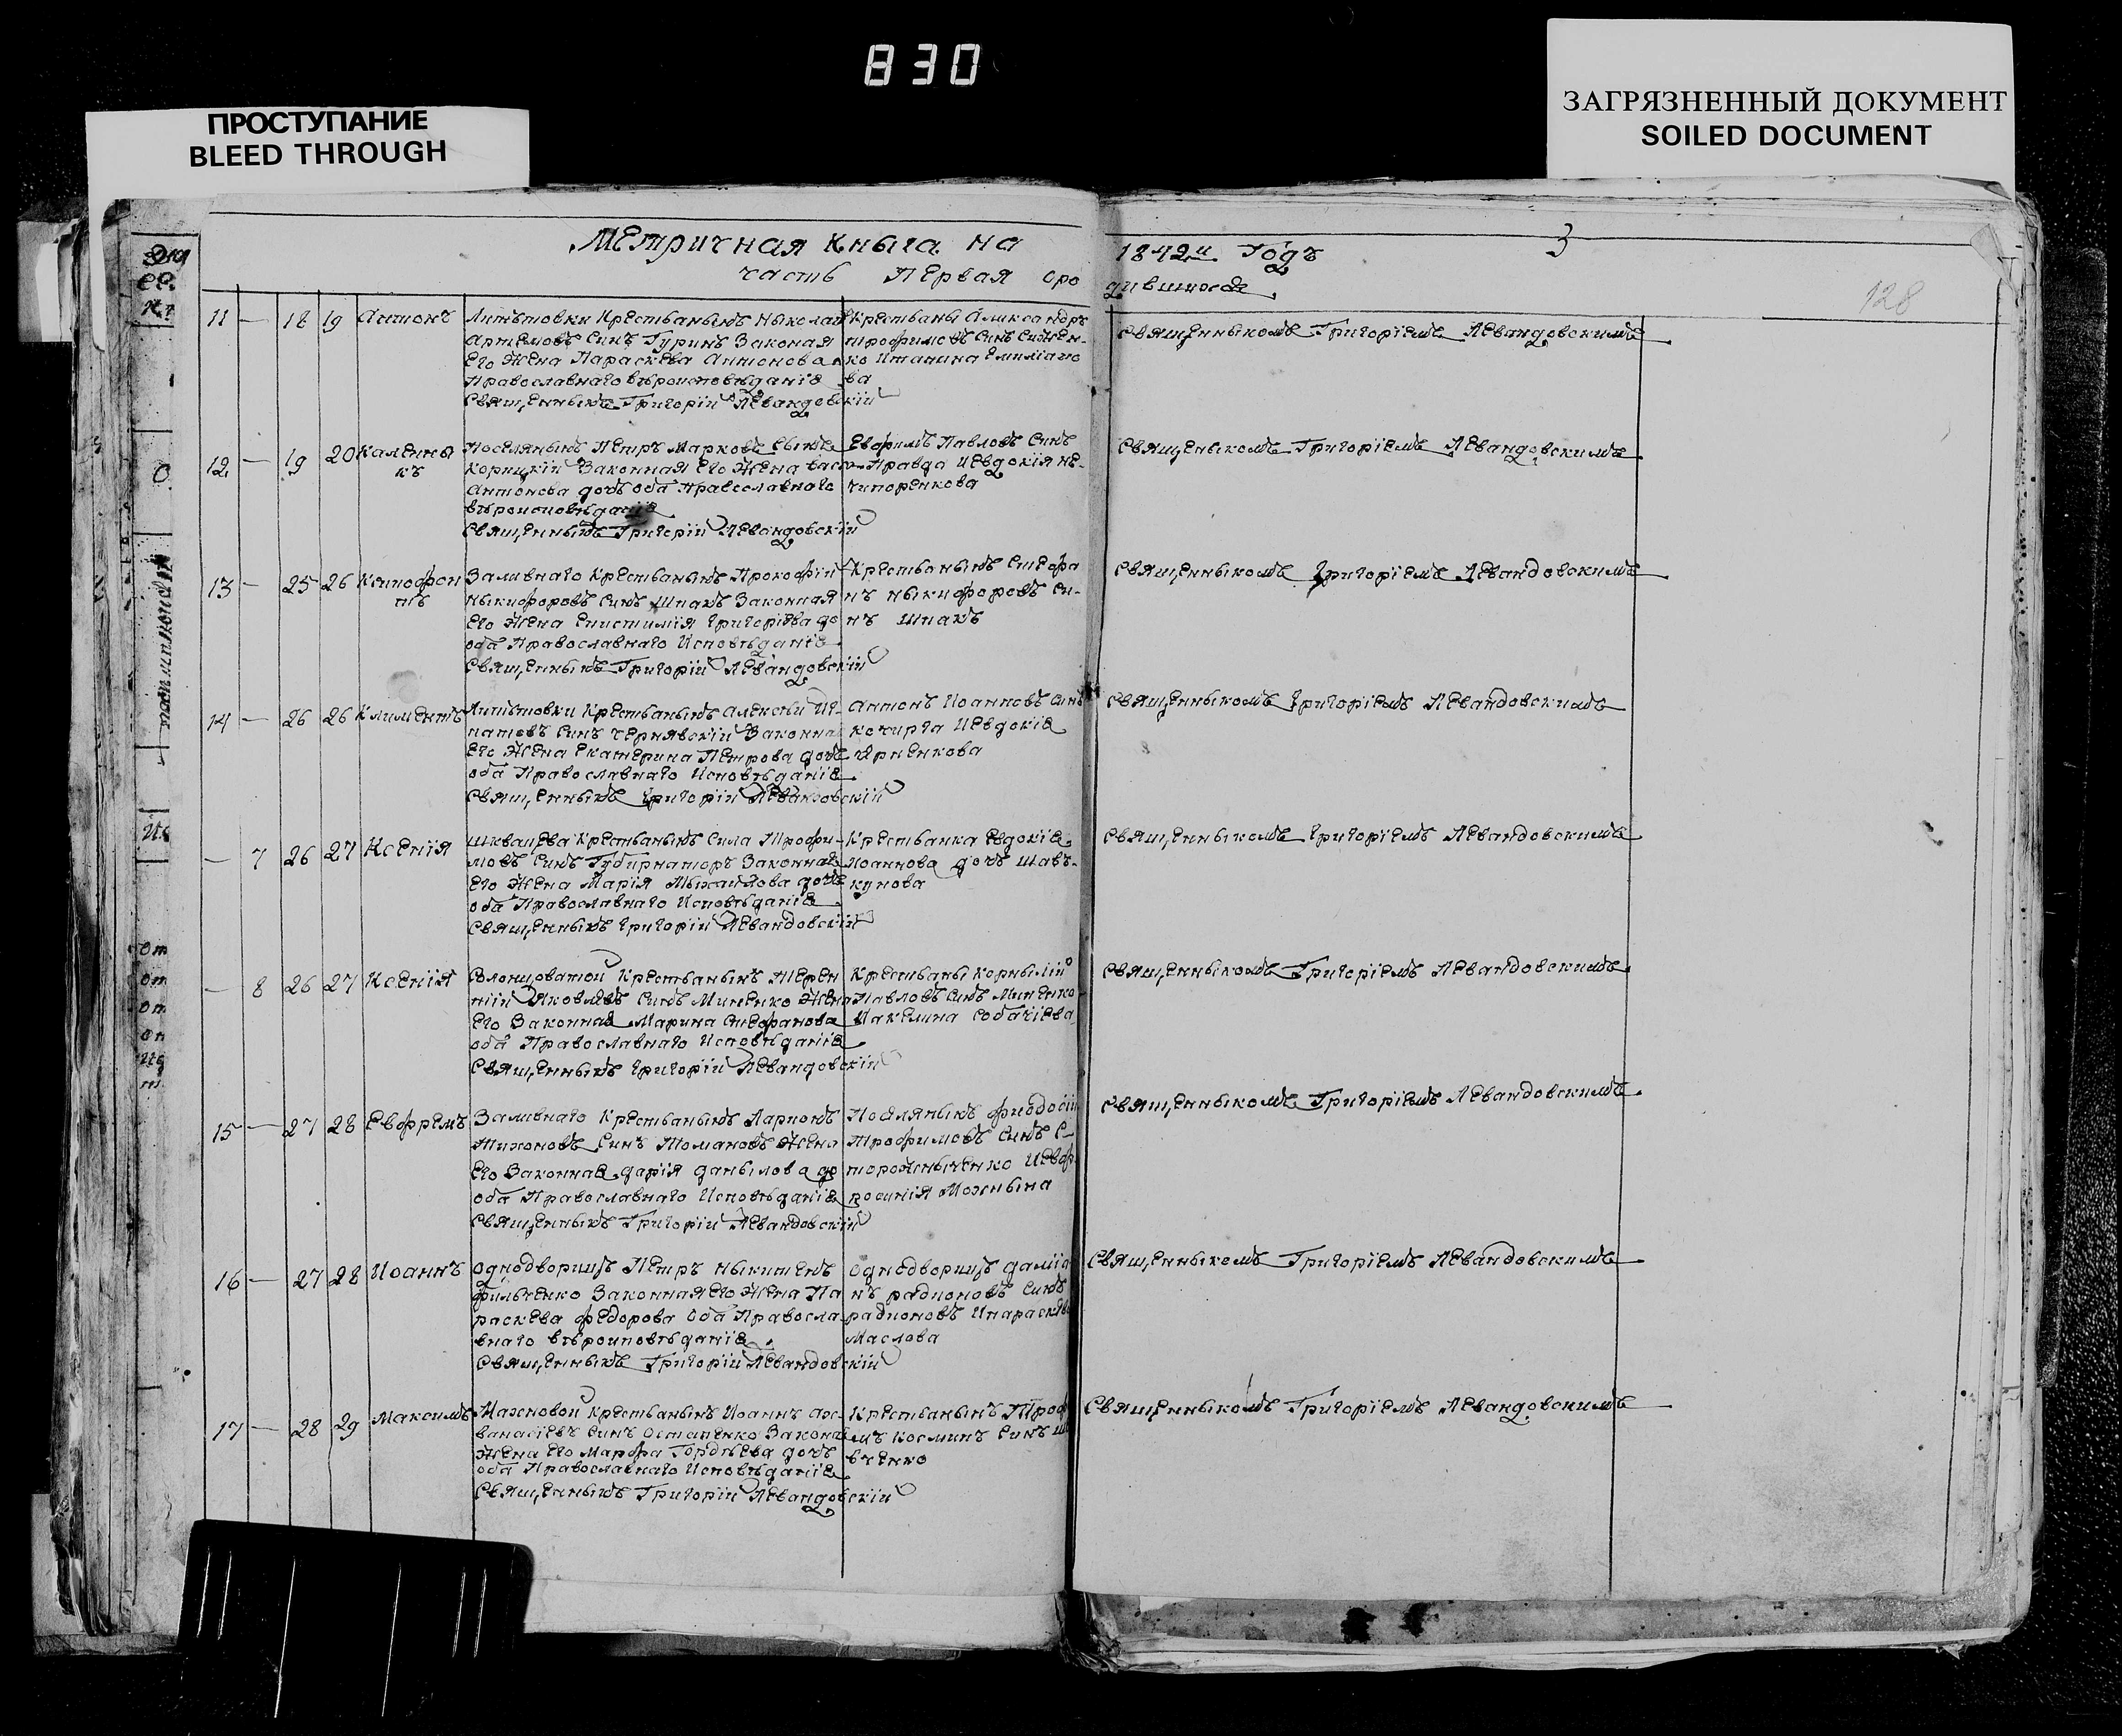 830
ПРОСТУПАНИЕ
BLEED THROUGH
ЗАГРЯЗНЕННЫЙ ДОКУМЕНТ
SOILED DOCUMENT
Метричная Кныга на
часть Первая оро
1842й Годъ
дившихся
3
128
11 — 18 19 Антонъ
Крестьанынъ Ныколай
Артемовъ Синъ Гуринъ Законая
Его Жена Параскева Антонова
Православнаго вѣроисповѣданія
Священныкъ Григорій Левандовскій
Крестьаны Александръ
трофимовъ Синъ
ва
Священныкомъ Григоріемъ Левандовскимъ
12 — 19 20 Каленны
къ
Поселянынъ Петръ Марковъ Сынъ
Корицкій Законная Его Жена
Антонова дочь оба Православнаго
вѣроисповѣданія
Священныкъ Григорій Левандовскій
Евфимъ Павловъ Синъ
Правда Иевдокія Не-
чипоренкова
Священыкомъ Григоріемъ Левандовскимъ
13 — 25 26 Ксенофон
тъ
Заливнаго Крестьанынъ Прокофій
Ныкифоровъ Синъ Шпакъ Законная
Его Жена Григоріева до
оба Православнаго Исповѣданія
Священныкъ Григорій Левандовскій
Крестьанынъ Стефа
нъ Ныкифоровъ Си-
нъ Шпакъ
Священныкомъ Григоріемъ Левандовскимъ
14 — 26 26 Климентъ
Крестьанынъ Алексѣй Иг-
натовъ Синъ Чернявскій Законна
Его Жена Екатерина Петрова дочь
оба Православнаго Исповѣданія
Священныкъ Григорій Левандовскій
Антонъ Иоанновъ Синъ
Кочирга Иевдокія
Священныкомъ Григоріемъ Левандовскимъ
— 7 26 27 Ксенія
Крестьанынъ Сила Трофи-
мовъ Синъ Губирнаторъ Законная
Его Жена Марія Мыхайлова дочь
оба Православнаго Исповѣданія
Священныкъ Григорій Левандовскій
Крестьанка Евдокія
Иоаннова дочь Шавъ-
кунова
Священныкомъ Григоріемъ Левандовскимъ
— 8 26 27 Ксенія
Солонцоватой Крестьанынъ Терен
тій Яковлевъ Синъ Миненко Жена
Его Законная Марина Стефанова
оба Православнаго Исповѣданія
Священныкъ Григорій Левандовскій
Крестьаны Корнылій
Павловъ Синъ Миненко
Иакелина Собачіева
Священныкомъ Григоріемъ Левандовскимъ
15 — 27 28 Евфремъ
Заливнаго Крестьанынъ Ларионъ
Тихоновъ Синъ Томановъ Жена
Его Законная Дарія Данылова до
оба Православнаго Исповѣданія
Священныкъ Григорій Левандовскій
Поселянынъ Фиодосій
Трофимовъ Синъ С-
тороженыченко Иевф
росинія Мохнына
Священныкомъ Григоріемъ Левандовскимъ
16 — 27 28 Иоаннъ
Однодворицъ Петръ Ныкитенъ
Фильченко Законная Его Жена Па
раскева Федорова Оба Правосла
внаго вѣроиповѣданія
Священныкъ Григорій Левандовскій
Однодворицъ Даміа
нъ радионовъ Синъ
радионовъ Ипараскева
Маслова
Священныкомъ Григоріемъ Левандовскимъ
17 — 28 29 Максимъ
Махновой Крестьанынъ Иоаннъ Аф-
ванасіевъ Синъ Остапенко Законая
Жена Его Марфа Гордѣева дочь
оба Православнаго Исповѣданія
Священныкъ Григорій Левандовскій
Крестьанынъ Троф
мъ Косминъ Синъ Ше
вченко
Священныкомъ Григоріемъ Левандовскимъ